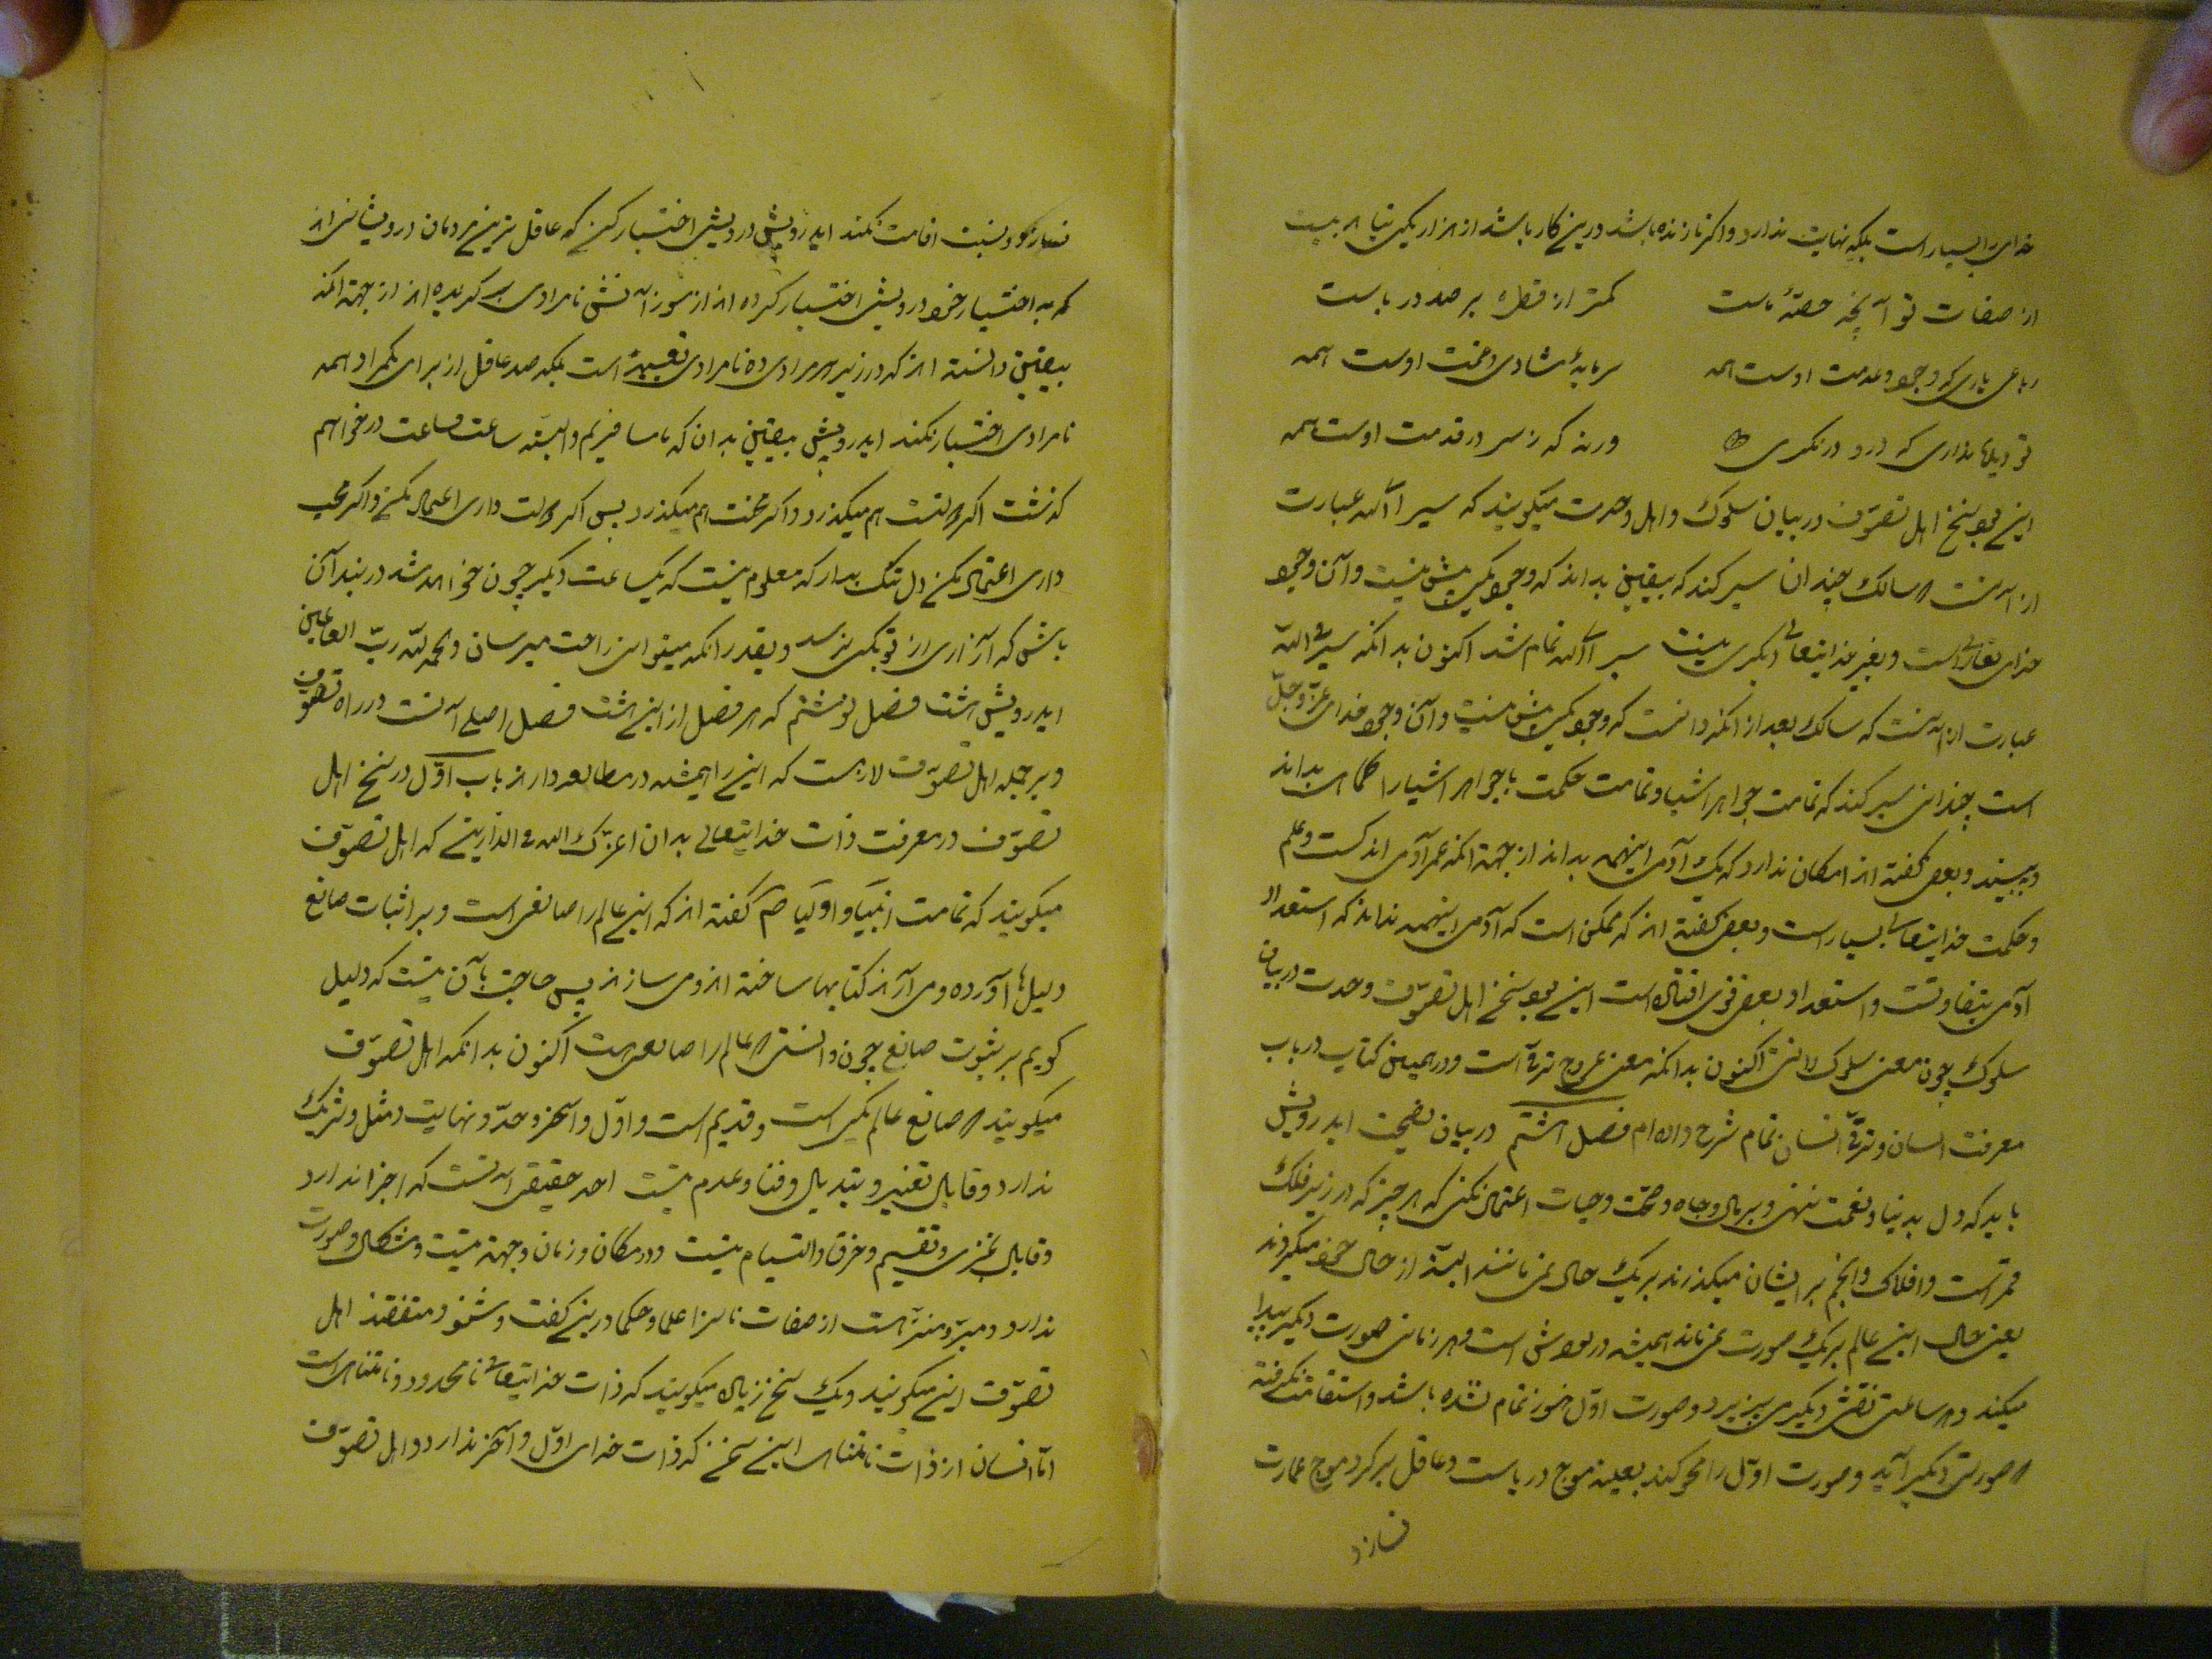 خدای را بسیار است بلکه نهایت ندارد و اگر تا زنده باشد درین کار باشد از هزار یکی
از صفات تو آنچه حصهٔ ماست    کمتر از قطرهٔ بر صد دریاست
رباعی یاری که وجود و عدمت اوست همه    سرمایهٔ شادی و غمت اوست همه
تو دیده نداری که درو درنگری    ورنه که ز سر تا قدمت اوست همه
این بود سخن اهل تصوف در بیان سلوک و اهل وحدت میگویند که سیر الی الله عبارت
از آنست که سالک چندان سیر کند که بیقین بداند که وجود یکی بیش نیست و آن وجود
خدای تعالی است و بغیر خدایتعالی دیگری نیست سیر الی الله تمام شد اکنون بدانکه سیر فی الله
عبارت از آنست که سالک بعد از آنکه دانست که وجود یکی بیش نیست و آن وجود خدای عز و جل
است چندانی سیر کند که تمامت جواهر اشیا و تمامت حکمت با جواهر اشیا را کماهی بداند
و ببیند و بعضی گفته اند امکان ندارد که یک آدمی اینهمه بداند از جهة آنکه عمر آدمی اندکست و علم
و حکمت خدایتعالی بسیار است و بعضی گفته اند که ممکن است که آدمی اینهمه بداند که استعداد
آدمی بتفاوتست و استعداد بعضی قوی افتاده است این بود سخن اهل تصوف وحدت در بیان
سلوک چون معنی سلوک دانستی اکنون بدانکه معنی عروج ترقی است و در همین کتاب در باب
معرفت انسان و ترقی انسان تمام شرح داده ام فصل هشتم در بیان نصیحت ایدرویش
باید که دل بدنیا و نعمت ننهی و بر مال و جاه و صحت و حیات اعتماد نکنی که هر چیز که در زیر فلک
قمر است و افلاک و انجم بر ایشان میگذرند بر یک حال نمی مانند البته از حال خود میگردند
یعنی حال این عالم بر یک صورت نمی ماند همیشه در گردش است و هر زمانی صورت دیگر پیدا
میکند و هر ساعتی نقشی دیگری میپذیرد و صورت اول هنوز تمام نشده باشد و استقامت نگرفته
که صورتی دیگر آید و صورت اول را محو کند بعینه موج دریاست و عاقل بر گرد موج عمارت
نسازد
نسازد و نیت اقامت نکند ایدرویش درویشی اختیار کن که عاقل ترین مردمان درویشانی اند
که به اختیار خود درویشی اختیار کرده اند از سوز آتش نامرادی برگزیده اند از جهة آنکه
بیقین دانسته اند که در زیر هر مرادی ده نامرادی تعبیه است بلکه صد عاقل از برای یکمراد همه
نامرادی اختیار نکند ایدرویش بیقین بدان که ما مسافریم و البته ساعت فساعت درخواهیم
گذشت اگر دولتست هم میگذرد و اگر محنت هم میگذرد پس اگر دولت داری اعتماد مکن و اگر محنت
داری اعتماد مکن دل تنگ مدار که معلوم نیست که یکساعت دیگر چون خواهد شد در بند آن
باش که آزاری از تو بکس نرسد و بقدر آنکه میتوانی راحت میرسان و الحمد لله رب العالمین
ایدرویش هشت فصل نوشتم که هر فصل از این هشت فصل اصلی است در راه تصوف
و بر جمله اهل تصوف لازمست که این را همیشه در مطالعه دارند باب اول در سخن اهل
تصوف در معرفت ذات خدایتعالی بدان اعزک الله فی الدارین که اهل تصوف
میگویند که تمامت انبیا و اولیا هم گفته اند که این عالم را صانعی است و بر اثبات صانع
دلیلها آورده و می آرند کتابها ساخته اند و می سازند پس حاجت بآن نیست که دلیل
گویم بر ثبوت صانع چون دانستی که عالم را صانعی هست اکنون بدانکه اهل تصوف
میگویند که صانع عالم یکی است و قدیم است و اول و آخر و حد و نهایت و مثل و شریک
ندارد و قابل تغییر و تبدیل و فنا و عدم نیست احد حقیقی است که اجزا ندارد
و قابل تجزی و تقسیم و خرق و التیام نیست و در مکان و زمان و جهة نیست و شکل و صورت
ندارد و مبرا و منزه است از صفات ناسزا علما و حکما درین گفت و شنود متفقند اهل
تصوف این میگویند و یک سخن زیاده میگویند که ذات خدایتعالی نامحدود و نامتناهی است
اما انسان از ذات نامتناهی این سخن که ذات خدای اول و آخر ندارد و اهل تصوف